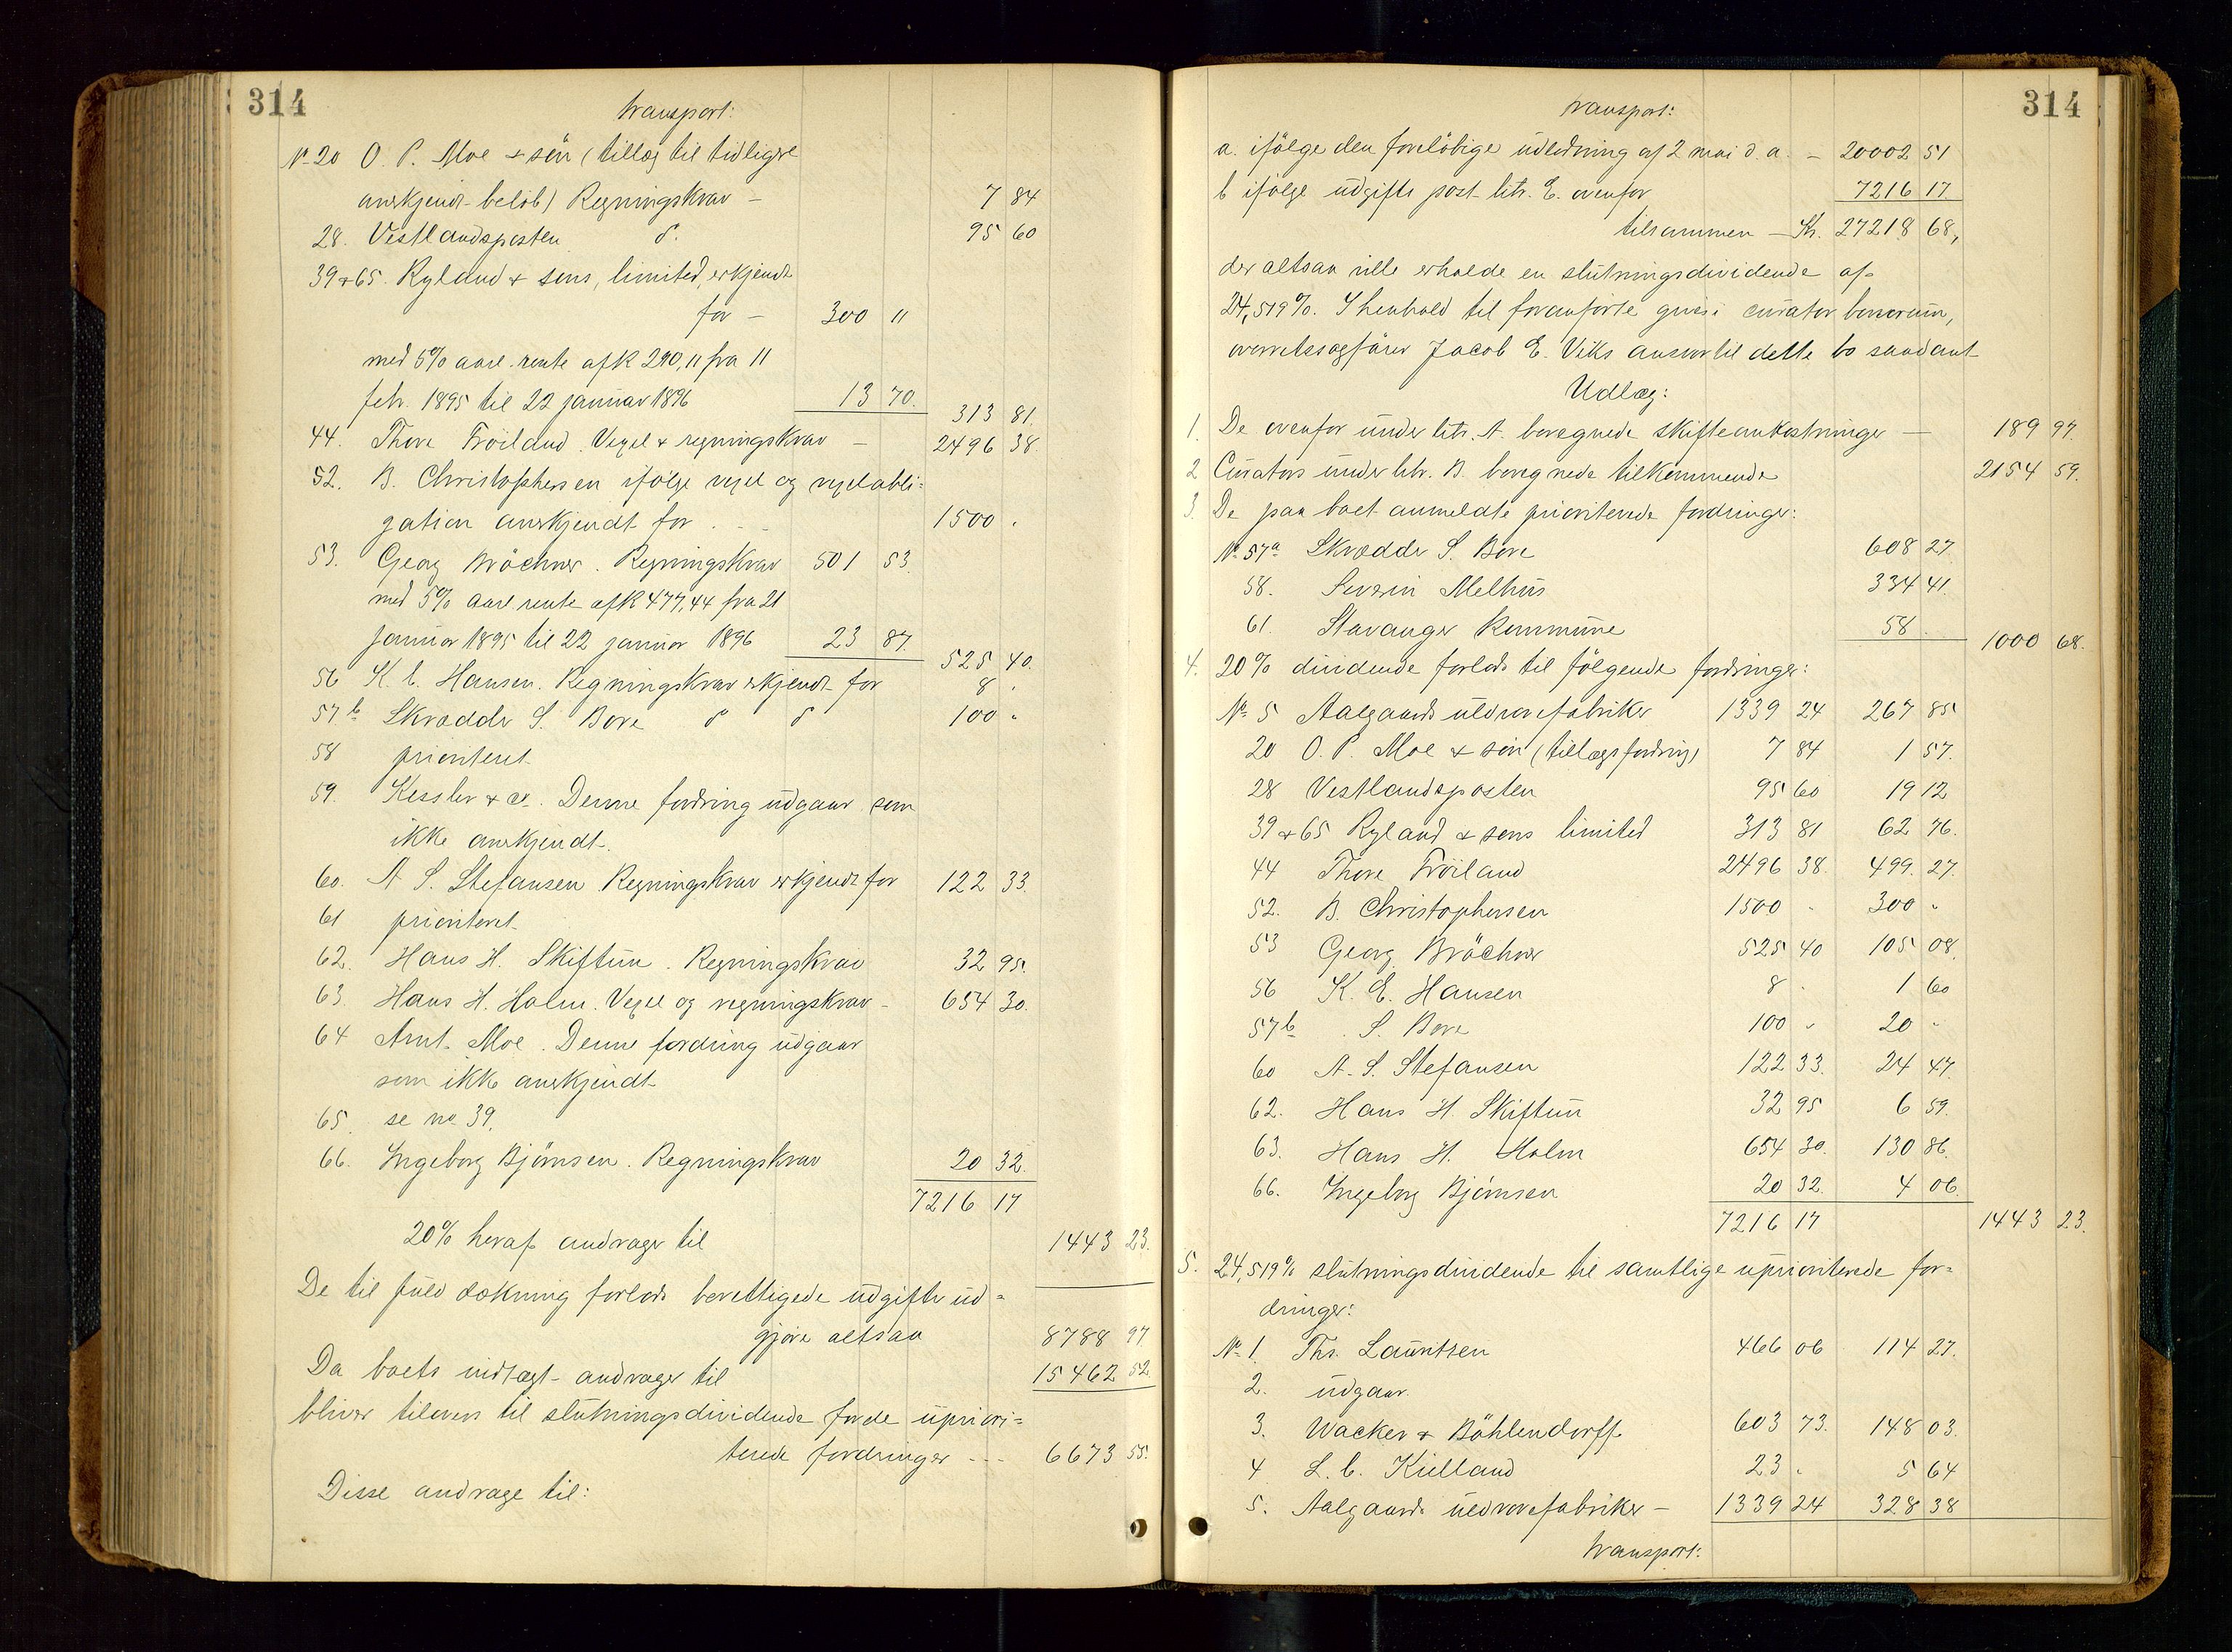 314
transport:
No 20 O. P. Moe & sön (tillæg til tidligere
anerkjendt beløb) Regningskrav — 7 84
28. Vestlandsposten d. 95 60
39 & 65. Ryland & sons, limited, erkjendt
for — 300 11
med 5% aarl. rente af K 290,11 fra 11
febr. 1895 til 22 januar 1896 13 70. 313 81.
44. Thore Fröiland. Vexel & regningskrav — 2496 38.
52. B. Christophersen ifölge vexel og vexelobli=
gation anerkjendt for . - - 1500 .
53. Georg Bröchner. Regningskrav 501 53.
med 5% aarl rente af K 477,44 fra 21
januar 1895 til 22 januar 1896 23 87. 525 40.
56 K. E. Hansen. Regningskrav erkjendt for 8 .
57b Skrædder S. Bore d d 100 .
58 prioriteret
59. Kessler & co. Denne fordring udgaar som
ikke anerkjendt.
60. A S. Stefansen Regningskrav erkjendt for 122 33.
61 prioriteret
62. Hans H. Skiftun. Regningskrav 32 95.
63. Hans H. Holm. Vexel og regningskrav - 654 30.
64 Arnt Moe. Denne fordring udgaar
som ikke anerkjendt
65. se no 39.
66. Ingeborg Bjørnsen. Regningskrav 20 32.
7216 17
20% heraf andrager til 1443 23.
De til fuld dækning forlods berettigede udgifter ud=
gjøre altsaa 8788 97
Da boets indtægt andrager til 15462 52.
bliver tilovers til slutningsdividende for de upriori=
terede fordringer - - - 6673 55.
Disse andrage til:
314
transport:
a. ifölge den foreløbige udlodning af 2 mai d. a. — 20002 51
b ifölge udgifts post litr. E. ovenfor 7216 17
tilsammen — Kr. 27218 68,
der altsaa ville erholde en slutningsdividende af
24,519%. I henhold til foranførte gives i curator bonorum,
overretssagfører Jacob E. Viks ansvar til dette bo saadant
Udlæg:
1. De ovenfor under litr. A. beregnede skifteomkostninger — 189 97.
2 Curators under litr. B. beregnede tilkommende 2154 59.
3. De paa boet anmeldte prioriterede fordringer:
No 57a Skrædder S. Bore 608 27
58. Severin Melhus 334 41.
61. Stavanger Kommune 58 . 1000 68.
4. 20% dividende forlods til følgende fordringer:
No 5 Aalgaards uldvarefabriker 1339 24 267 85
20 O. P. Moe & sön (tillægsfordring) 7 84 1 57.
28 Vestlandsposten 95 60 19 12
39 & 65 Ryland & sons limited 313 81 62 76.
44 Thore Fröiland 2496 38. 499. 27.
52. B. Christophersen 1500 . 300 .
53 Georg Bröchner 525 40 105 08.
56 K. E. Hansen 8 . 1 60
57b . S. Bore 100 . 20 .
60 A. S. Stefansen 122 33. 24 47.
62. Hans H. Skiftun 32 95 6 59.
63. Hans H. Holm 654 30. 130 86.
66. Ingeborg Bjørnsen 20 32. 4 06.
7216 17 1443 23.
5. 24,519% slutningsdividende til samtlige uprioriterede for=
dringer:
No 1. Ths. Lauritsen 466 06 114 27.
2. udgaar.
3. Wacker & Böhlendorff 603 73. 148 03.
4 L. C. Kielland 23 . 5 64
5. Aalgaards uldvarefabriker — 1339 24 328 38
transport: